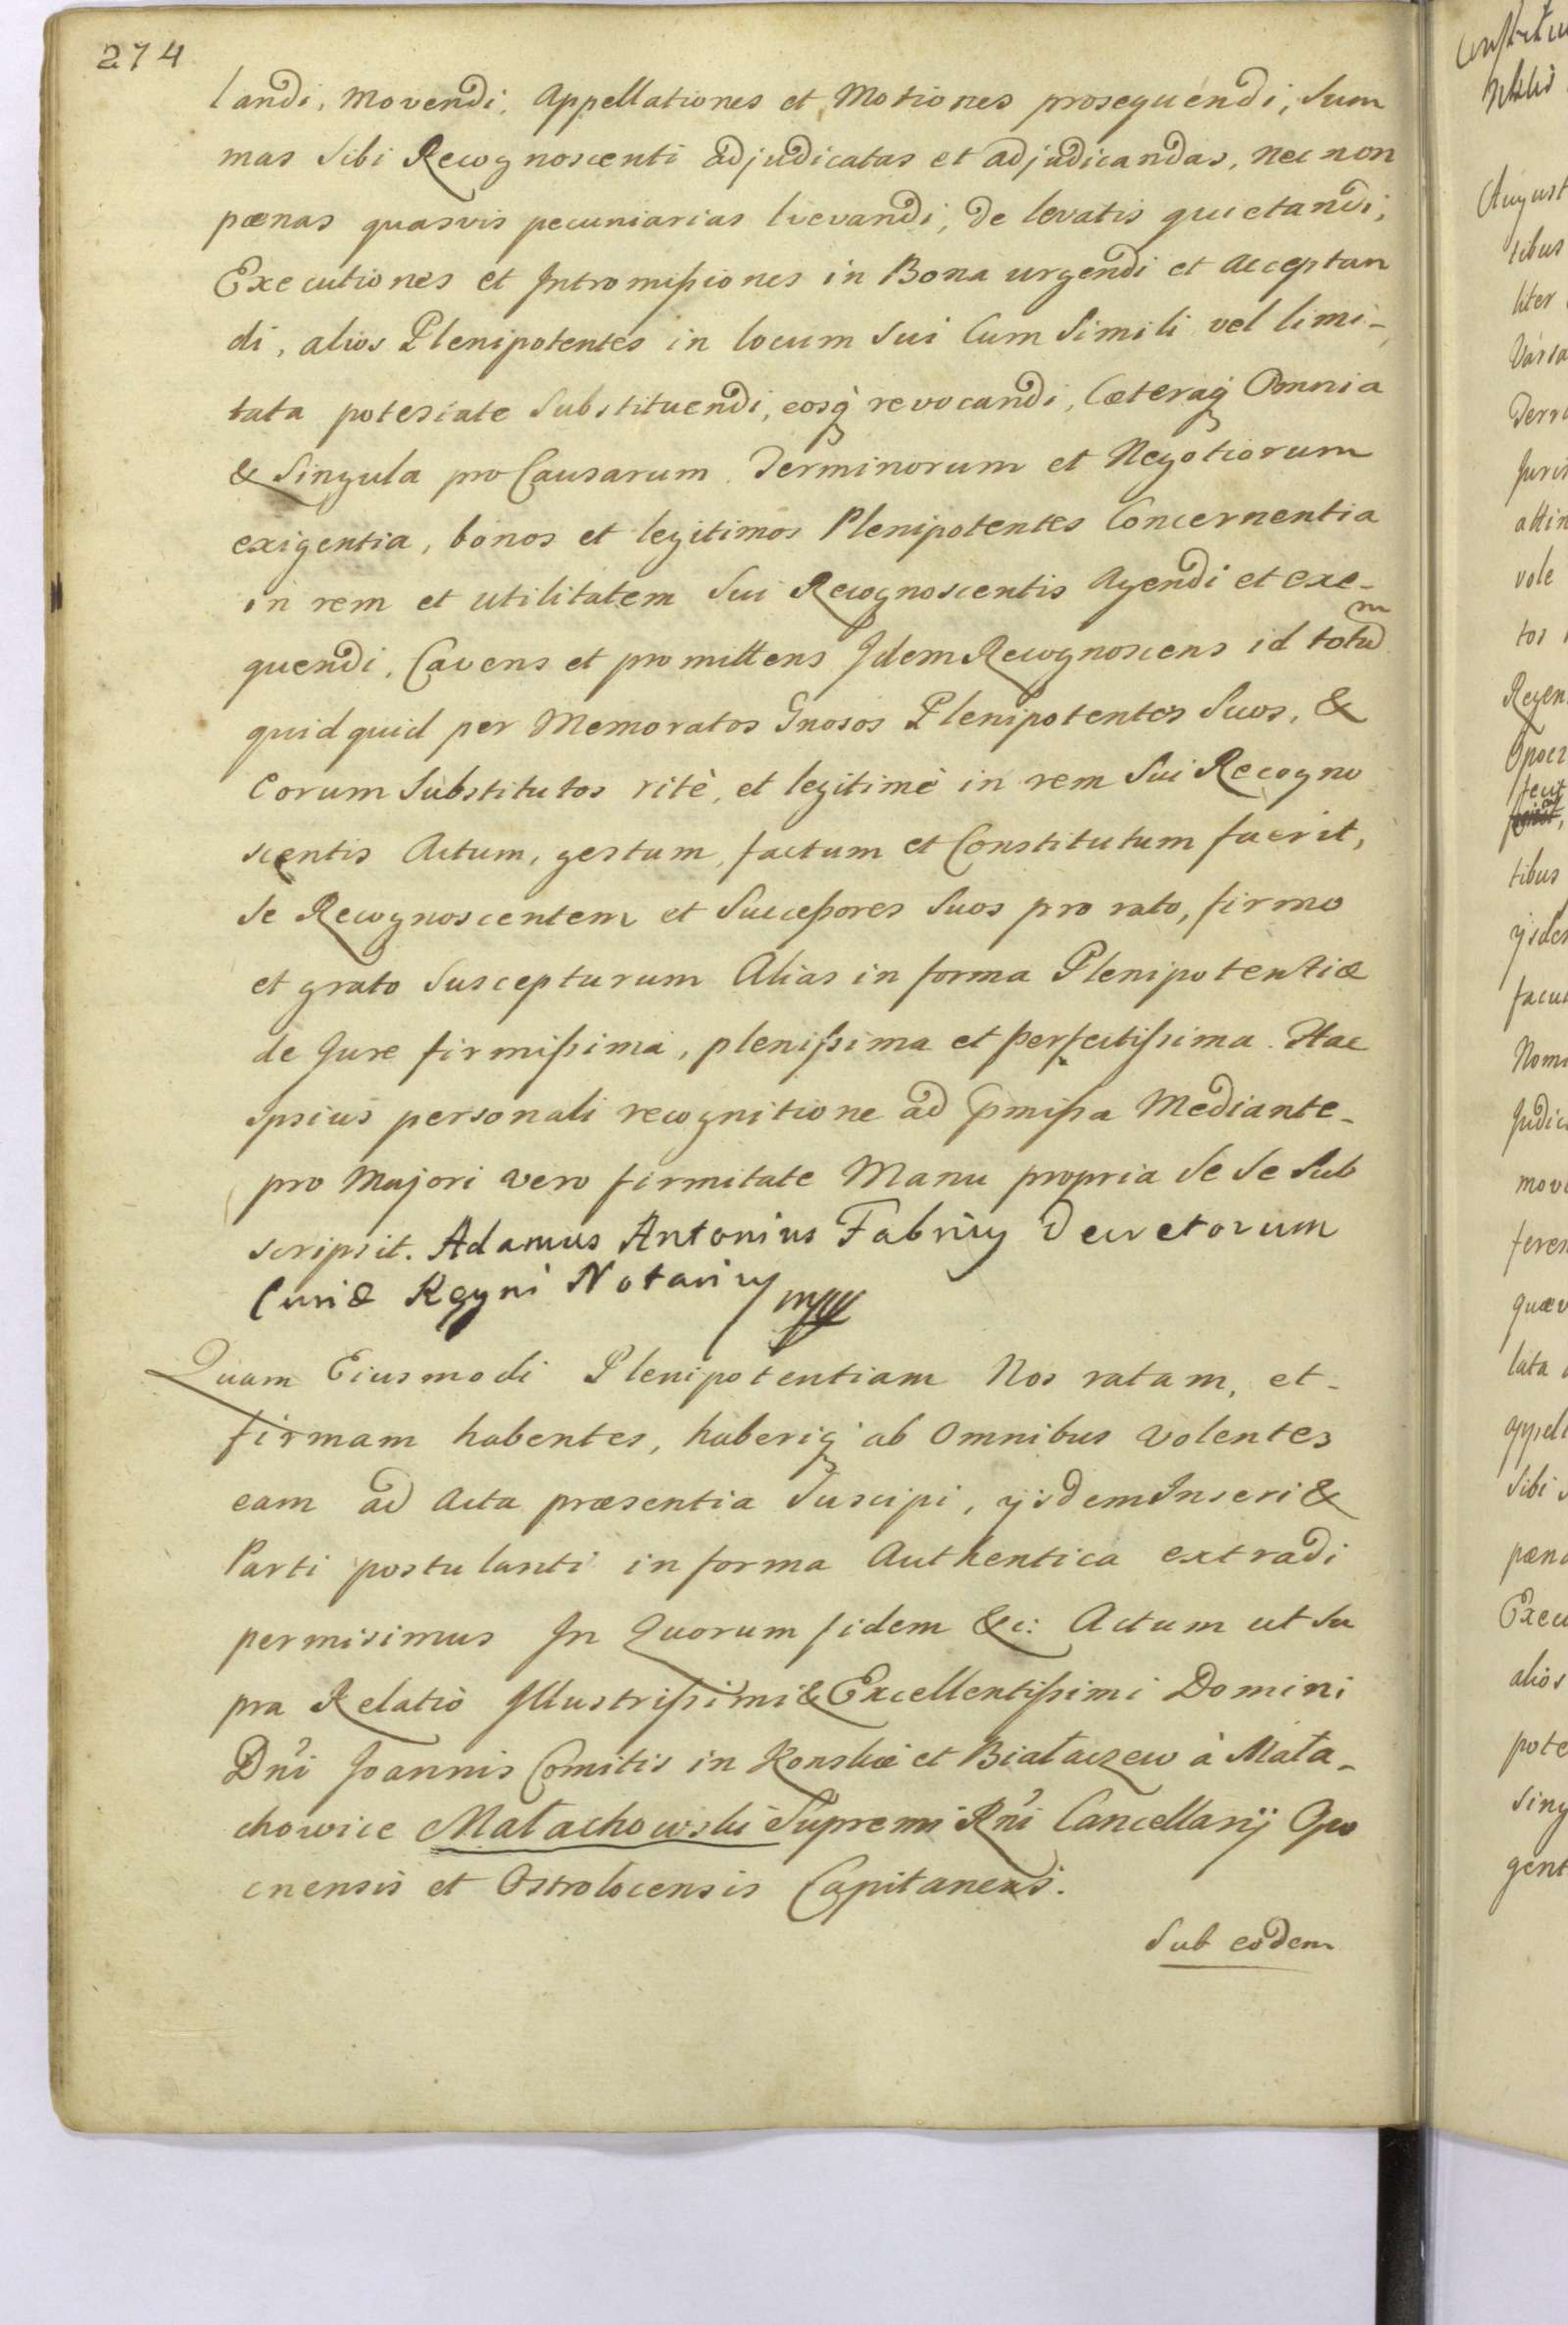 274
landi, Movendi, Appellationes et Motiones prosequendi, Sum
mas Sibi Recognoscenti adjudicatas et adjudicandas, nec non
pœnas quasvis pecuniarias lievandi, de levatis quietandi,
Executiones et Intromißiones in Bona urgendi et acceptan
di, alios Plenipotentes in locum Sui Cum Simili vel limi-
tata potestate Substituendi, eosq̃ revocandi, Cæteraq̃ Omnia
& Singula pro Causarum Terminorum et Negotiorum
exigentia, bonos et legitimos Plenipotentes Concernentia
in rem et utilitatem Sui Recognoscentis Agendi et exe-
quendi, Cavens et promittens Idem Recognoscens id totum
quidquid per Memoratos Gnosos Plenipotentes Suos, &
Eorum Substitutos ritè, et legitimè in rem Sui Recogno
scentis Actum, gestum, factum et Constitutum fuerit,
Se Recognoscentem et Succeßores Suos pro rato, firmo
et grato Suscepturum Alias in forma Plenipotentiæ
de Jure firmißima, plenißima et perfectißima. Hac
ipsius personali recognitione ad p̃mißa Mediante-
pro Majori vero firmitate Manu propria Se Se Sub
scripsit. Adamus Antonius Fabriy Decretorum
Curiæ Regni Notariy mpp
Quam Eiusmodi Plenipotentiam Nos ratam, et-
firmam habentes, haberiq̃ ab Omnibus Volentes
eam ad Acta præsentia Suscipi, ijsdem Inseri &
Parti postulanti in forma Authentica extradi
permisimus In Quorum fidem &c: Actum ut Su
pra Relatio Illustrißimi & Excellentißimi Domini
Dn̄i Joannis Comitis in Konskie et Białaczew à Mała-
chowice Małachowski Supremi Rn̄i Cancellarij
et Ostrolocensis Capitanei.
Sub eodem